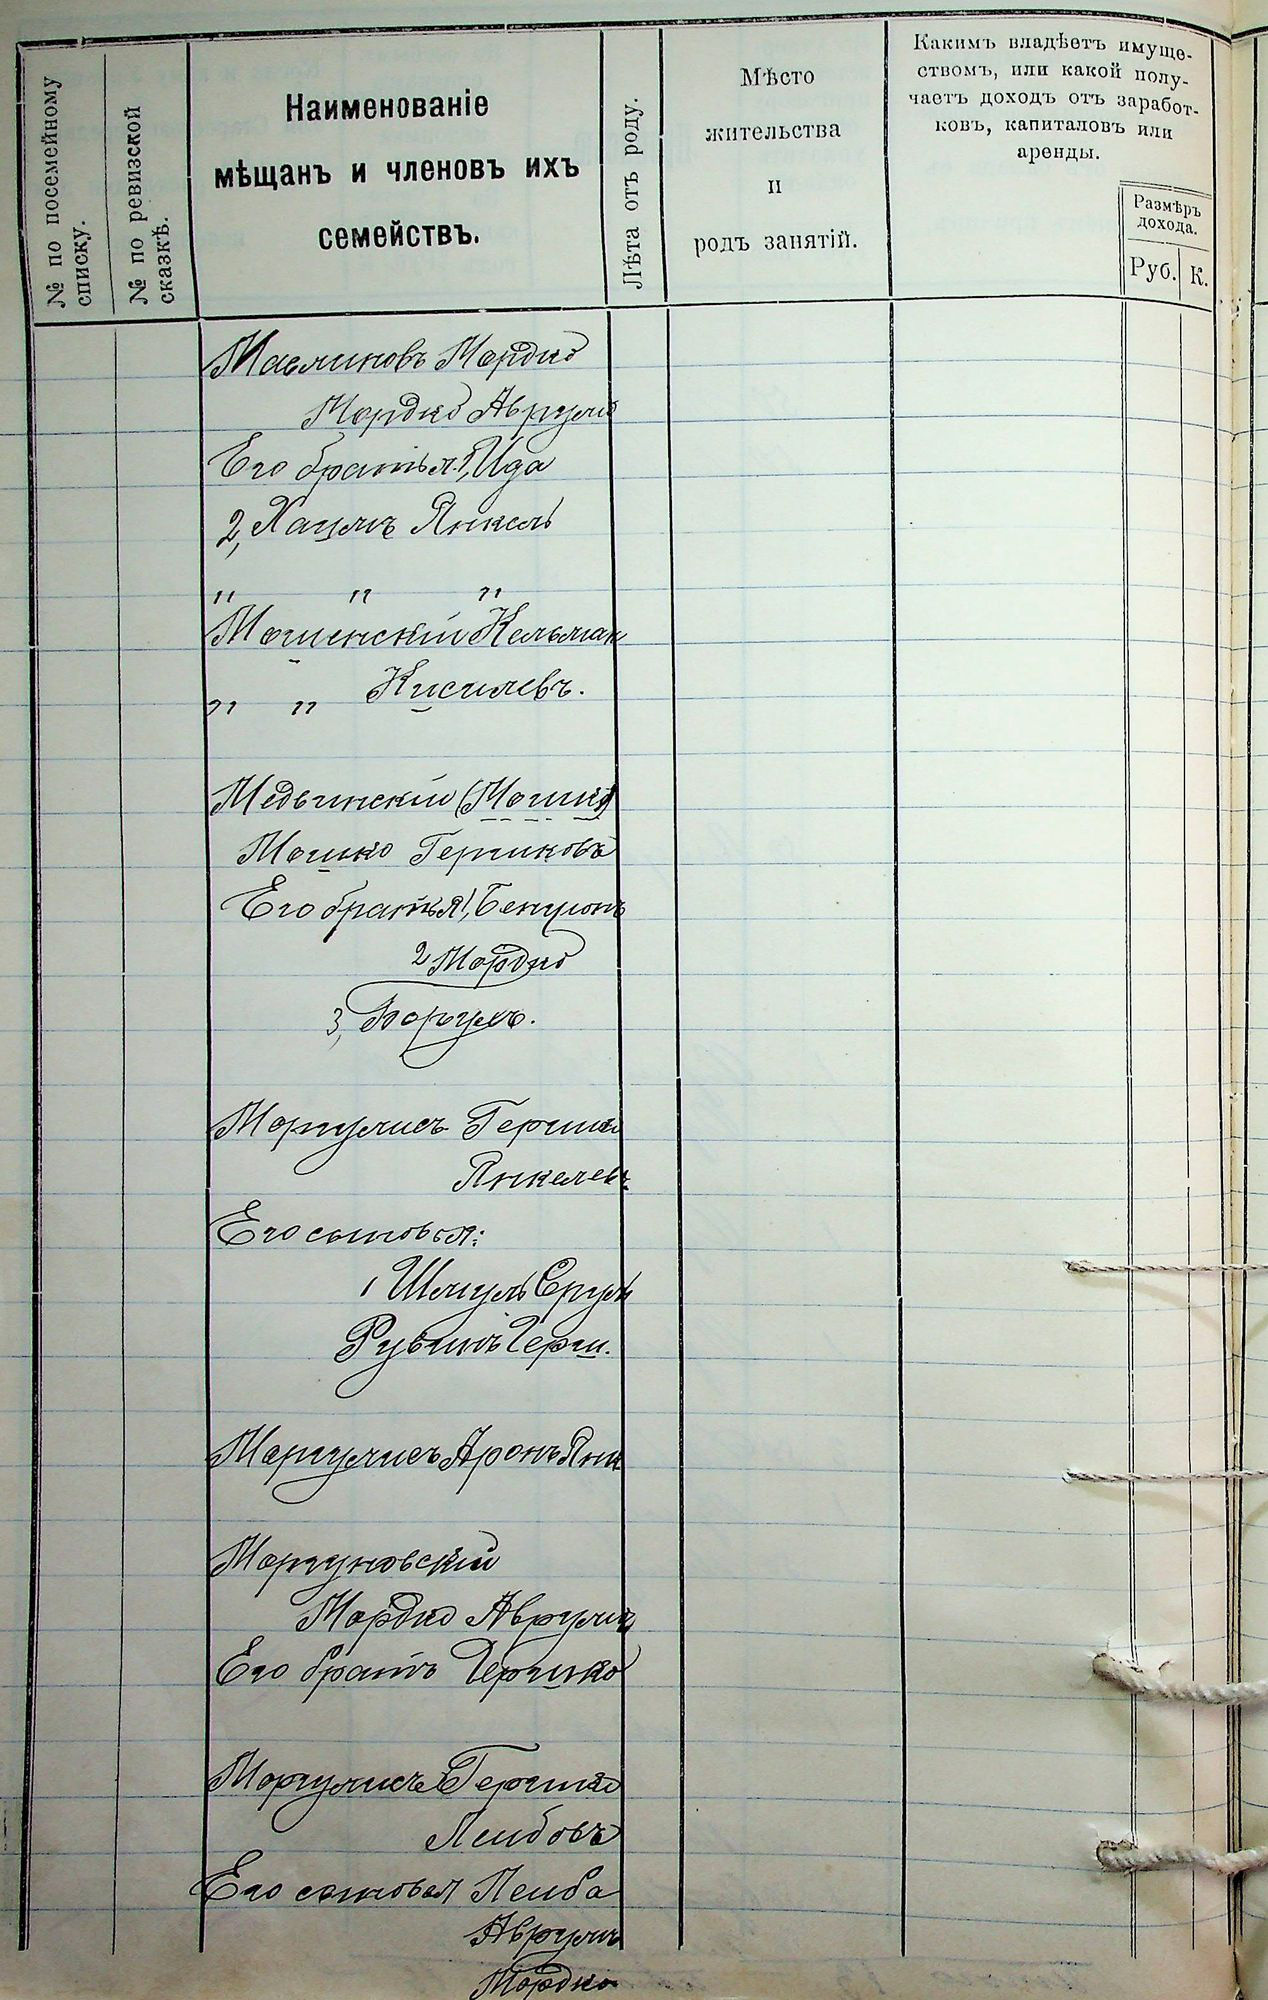 № по посемейному
списку.
№ по ревизской
сказкѣ.
Наименованіе
мѣщанъ и членовъ ихъ
семействъ.
Лѣта отъ роду.
Мѣсто
жительства
и
родъ занятій.
Какимъ владѣетъ имуще-
ствомъ, или какой полу-
чаетъ доходъ отъ заработ-
ковъ, капиталовъ или
аренды.
Размѣръ
дохода.
Руб.
К.
Масликовъ Мордко
Мордко Аврумо
Его братья 1, Ида
2, Хаимъ Янкель
" " "
Мошенскій Кельман
" " Кисилевъ.
Медвинскій (Мошко)
Мошко Гершковъ
Его братья 1, Бенционъ
2 Мордко
3, Борухъ.
Моргулисъ Гершко
Янкелевъ
Его сыновья:
1 Шмуль Сруль
Рувинъ Герш.
Маргулисъ Аронъ Янк
Моргуновскій
Мордко Аврумъ
Его братъ Гершко
Моргулисъ Гершко
Лейбовъ
Его сыновья Лейба
Аврумъ
Мордко